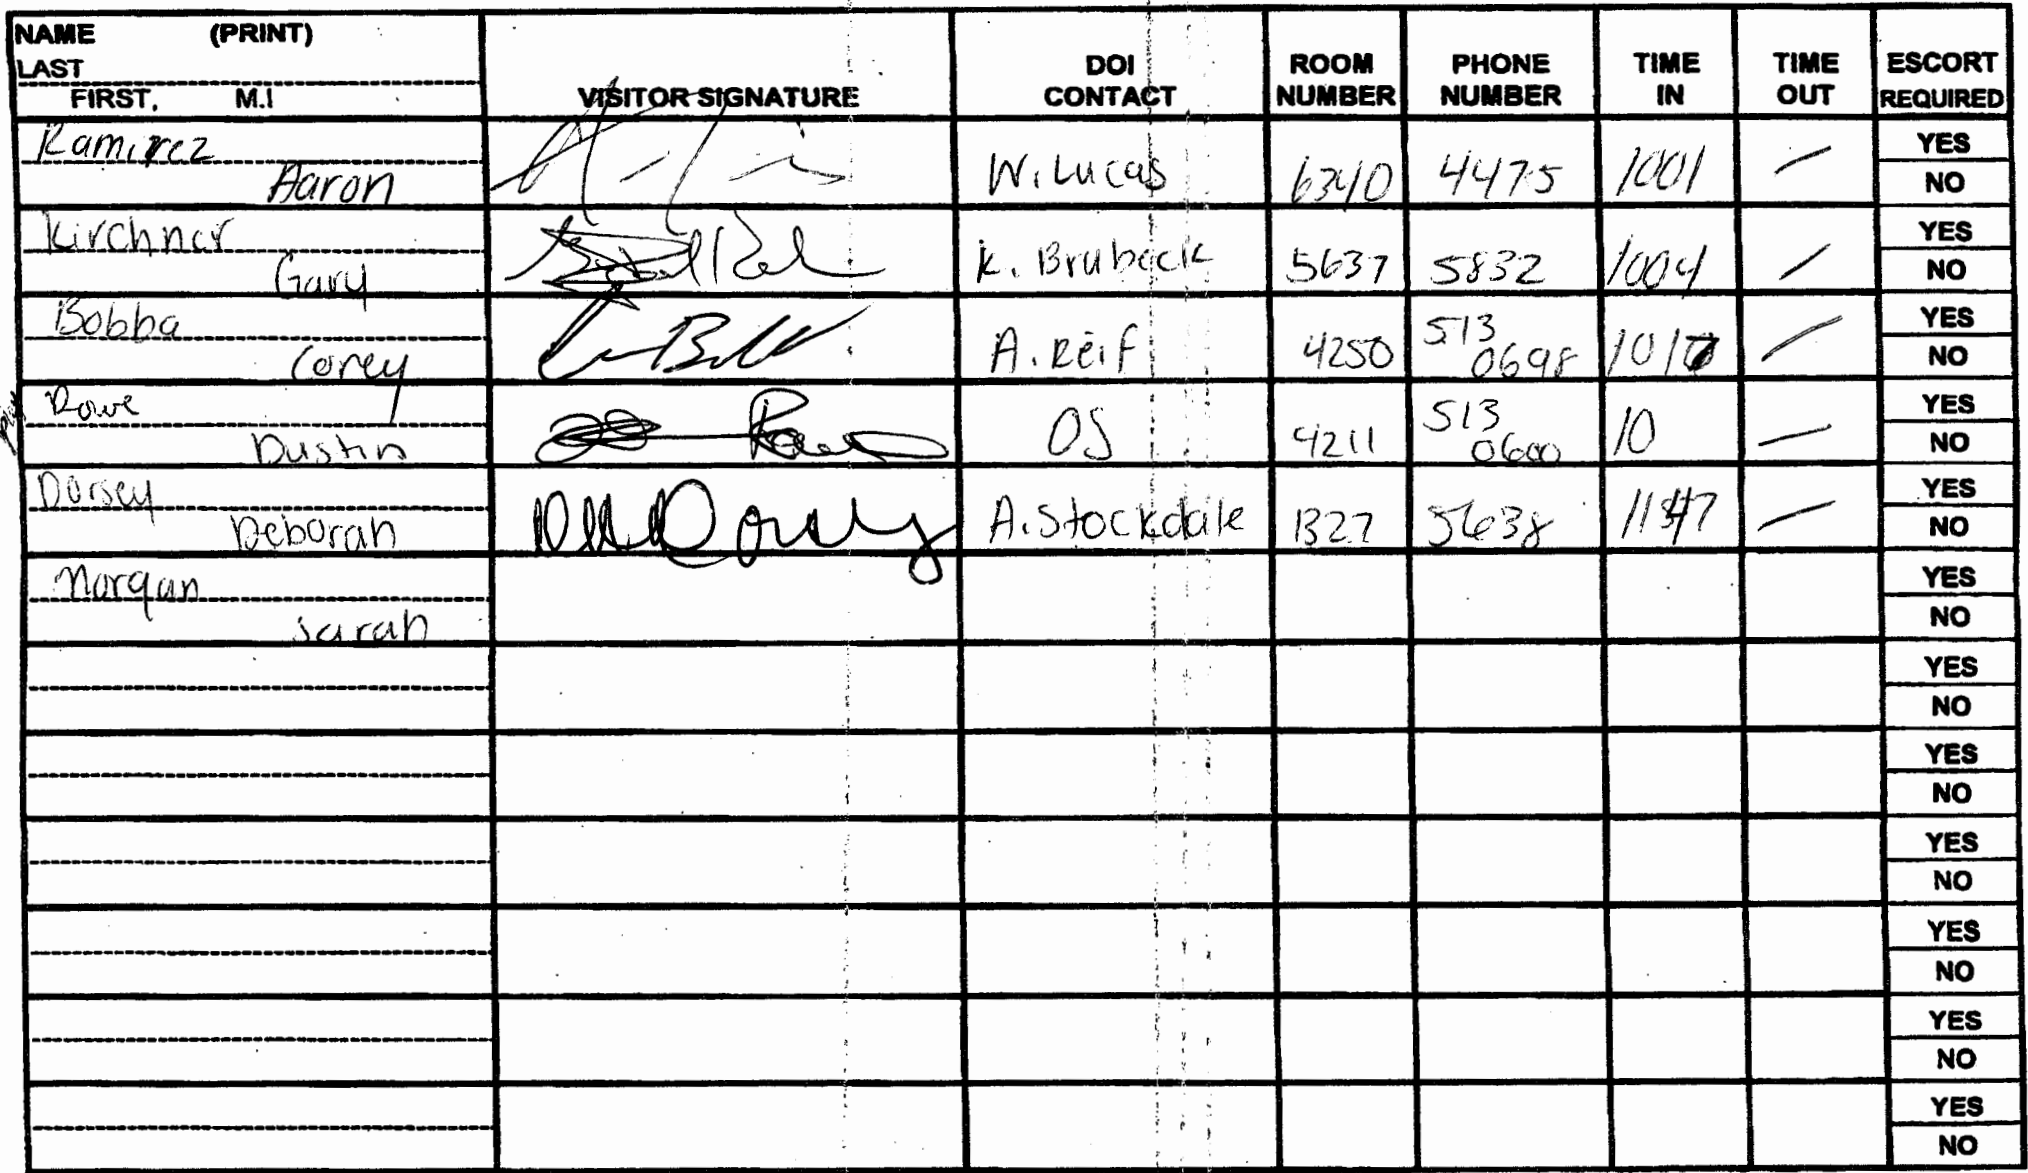 NAME (PRINT)
LAST
FIRST, M.I
VISITOR SIGNATURE
DOI
CONTACT
ROOM
NUMBER
PHONE
NUMBER
TIME
IN
TIME
OUT
ESCORT
REQUIRED
Ramirez
Aaron
W. Lucas
6340
4475
1001
—
YES
NO
Kirchner
Gary
K. Brubeck
5637
5832
1004
—
YES
NO
Bobba
Corey
A. Reif
4250
513
0698
—
YES
NO
Rowe
Dustin
OS
4211
513
0600
10
—
YES
NO
Dorsey
Deborah
A. Stockdale
1327
5638
—
YES
NO
Morgan
Sarah
YES
NO
YES
NO
YES
NO
YES
NO
YES
NO
YES
NO
YES
NO